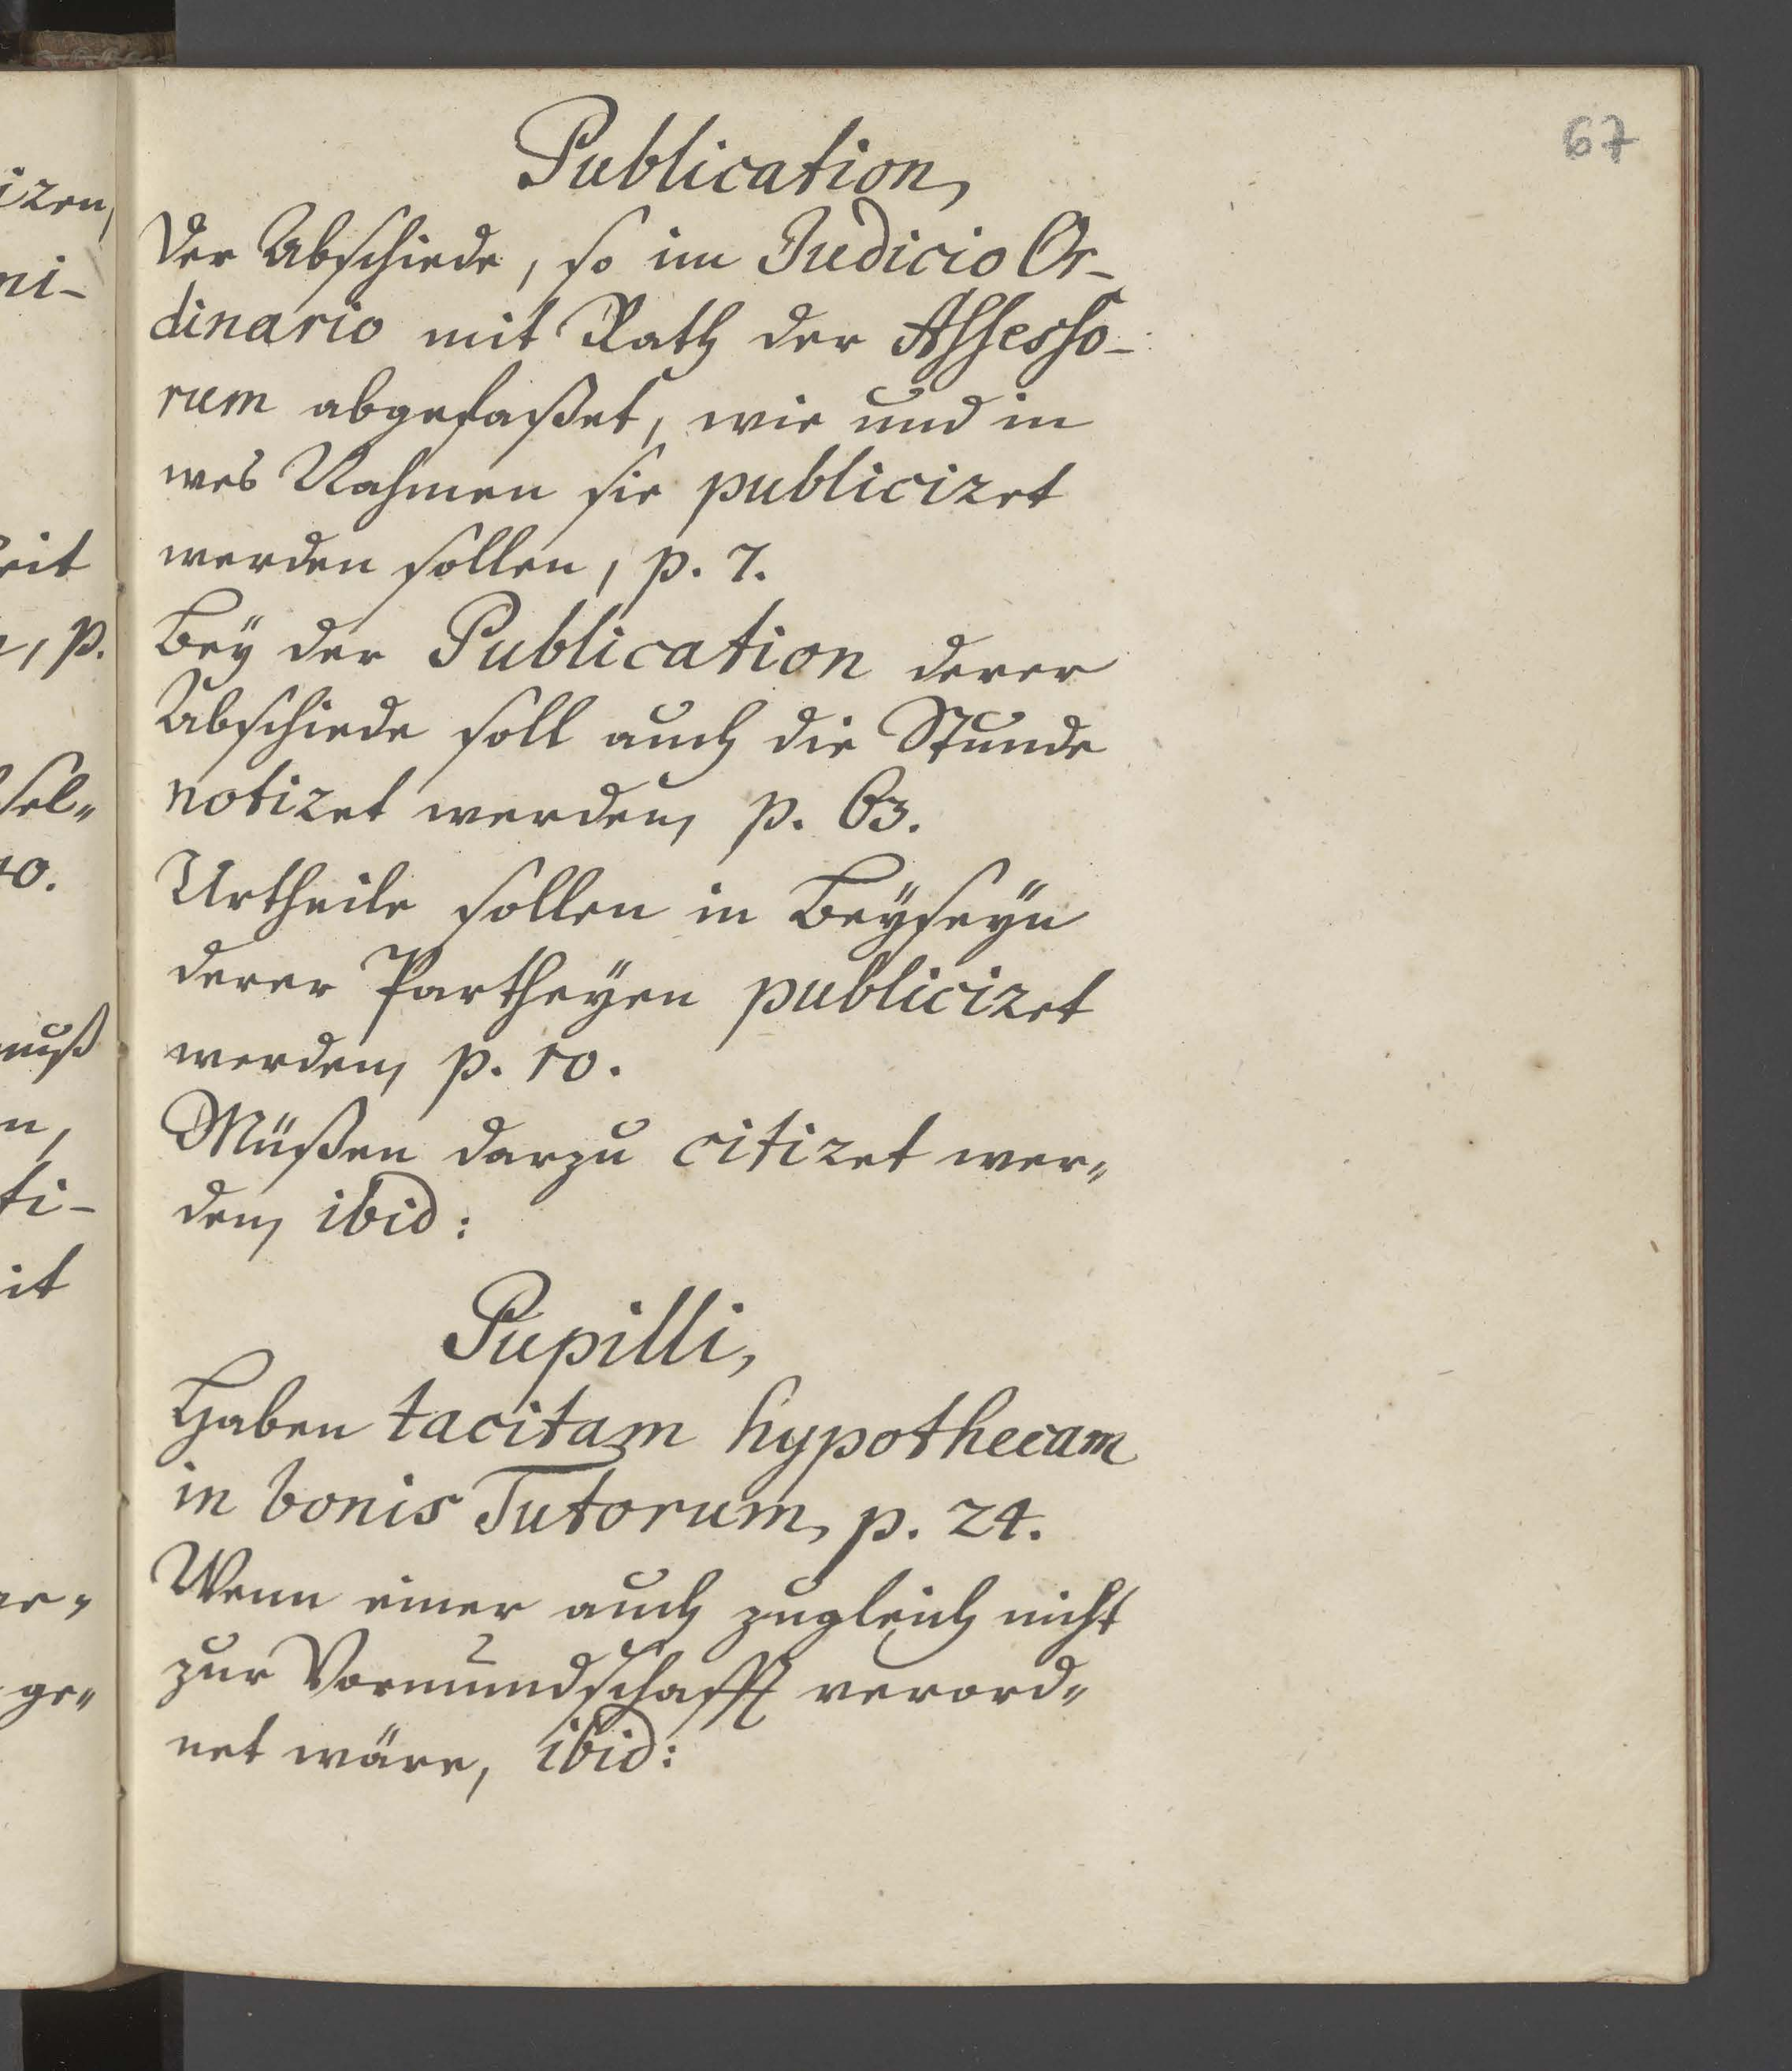 67
Publication,
Der Abschiede, so im Judicio Or-
dinario mit Rath der Assesso-
rum abgefaßet, wie und in
wes Nahmen sie publiciret
werden sollen, p. 7.
Bey der Publication derer
Abschiede soll auch die Stunde
notiret werden, p. 63.
Urtheile sollen in Beyseÿn
derer Partheÿen publiciret
werden, p. 10.
Müßen darzu citiret wer„
den, ibid:
Pupilli,
Haben tacitam hypothecam
in bonis Tutorum, p. 24.
Wenn einer auch zugleich nicht
zur Vormundschafft verord„
net wäre, ibid: